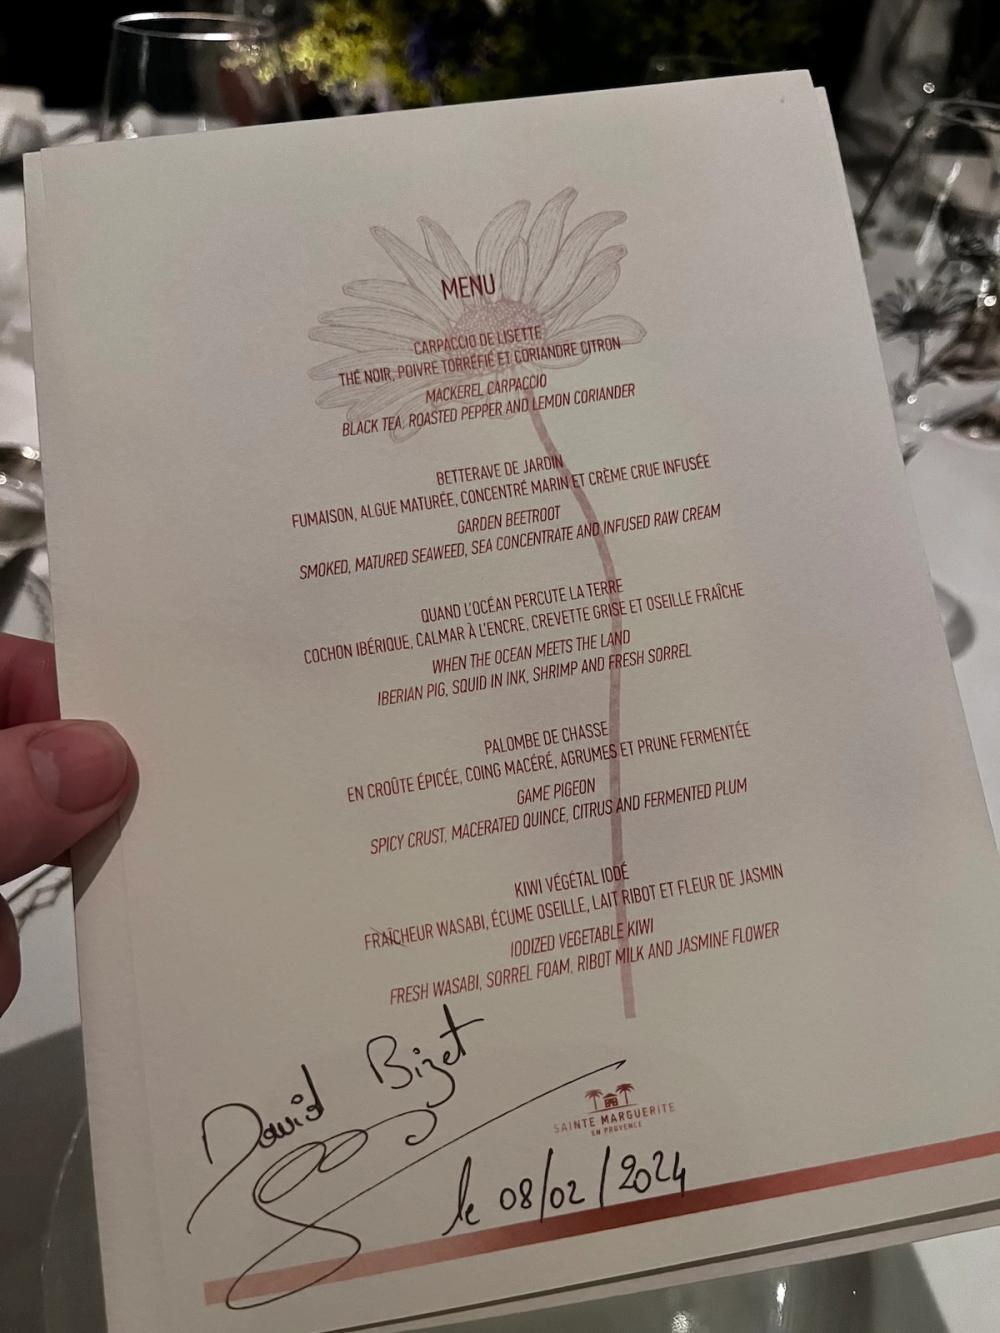 MENU
CARPACCIO DE LISETTE
THÉ NOIR, POIVRE TORRÉFIÉ ET CORIANDRE CITRON
MACKEREL CARPACCIO
BLACK TEA, ROASTED PEPPER AND LEMON CORIANDER
BETTERAVE DE JARDIN
FUMAISON, ALGUE MATURÉE, CONCENTRÉ MARIN ET CRÈME CRUE INFUSÉE
GARDEN BEETROOT
SMOKED, MATURED SEAWEED, SEA CONCENTRATE AND INFUSED RAW CREAM
QUAND L'OCÉAN PERCUTE LA TERRE
COCHON IBÉRIQUE, CALMAR À L'ENCRE, CREVETTE GRISE ET OSEILLE FRAÎCHE
WHEN THE OCEAN MEETS THE LAND
IBERIAN PIG, SQUID IN INK, SHRIMP AND FRESH SORREL
PALOMBE DE CHASSE
EN CROÛTE ÉPICÉE, COING MACÉRÉ, AGRUMES ET PRUNE FERMENTÉE
GAME PIGEON
SPICY CRUST, MACERATED QUINCE, CITRUS AND FERMENTED PLUM
KIWI VÉGÉTAL IODÉ
FRAÎCHEUR WASABI, ÉCUME OSEILLE, LAIT RIBOT ET FLEUR DE JASMIN
IODIZED VEGETABLE KIWI
FRESH WASABI, SORREL FOAM, RIBOT MILK AND JASMINE FLOWER
David Bizet
SAINTE MARGUERITE
EN PROVENCE
le 08/02/2024